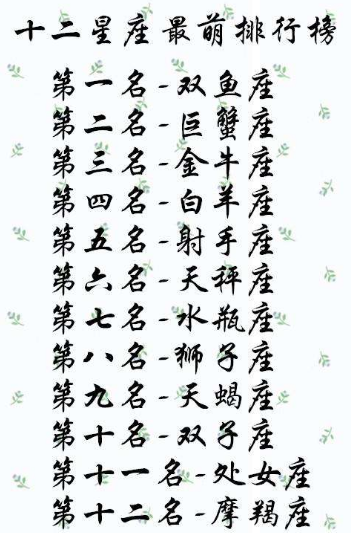 十二星座最萌排行榜
第一名-双鱼座
第二名-巨蟹座
第三名-金牛座
第四名-白羊座
第五名-射手座
第六名-天秤座
第七名-水瓶座
第八名-狮子座
第九名-天蝎座
第十名-双子座
第十一名-处女座
第十二名-摩羯座